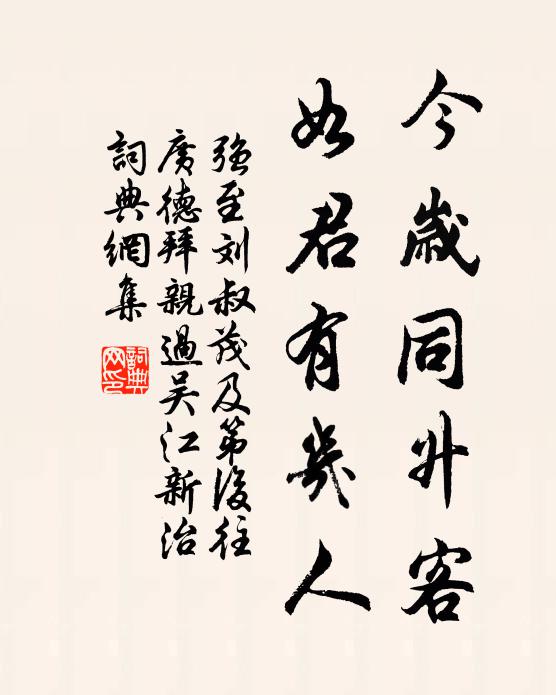 今歲同升客
如君有幾人
强至刘叔茂及第後往
廣德拜親過吴江新治
詞典網集
詞典網印